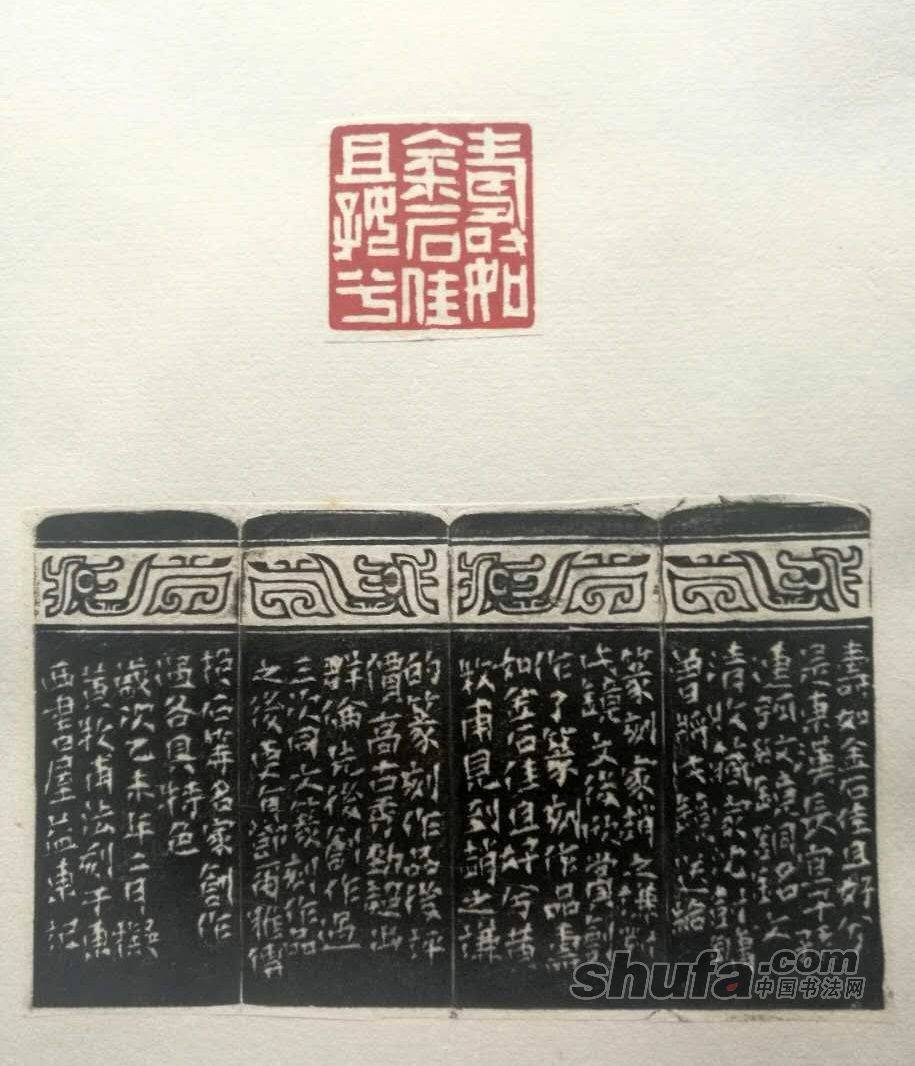 壽如
金石佳
且好兮
壽如金石佳且好兮
是東漢長宜子孫
連弧紋鏡銅銘文
清收藏家沈樹鏞
日將此鏡送給
篆刻家趙之謙對
此鏡文後欣賞創
作了篆刻作品壽
如金石佳且好兮黃
牧甫見到趙之謙
的篆刻作品後評
價高古秀勁超出
群倫先後創作過
三次同文篆刻作品
之後更有鄧爾雅傅
抱石等名家創作
過各具特色
歲次乙未年二月擬
黃牧甫法刻于東
西書屋益東記
shufa.com
中国书法网